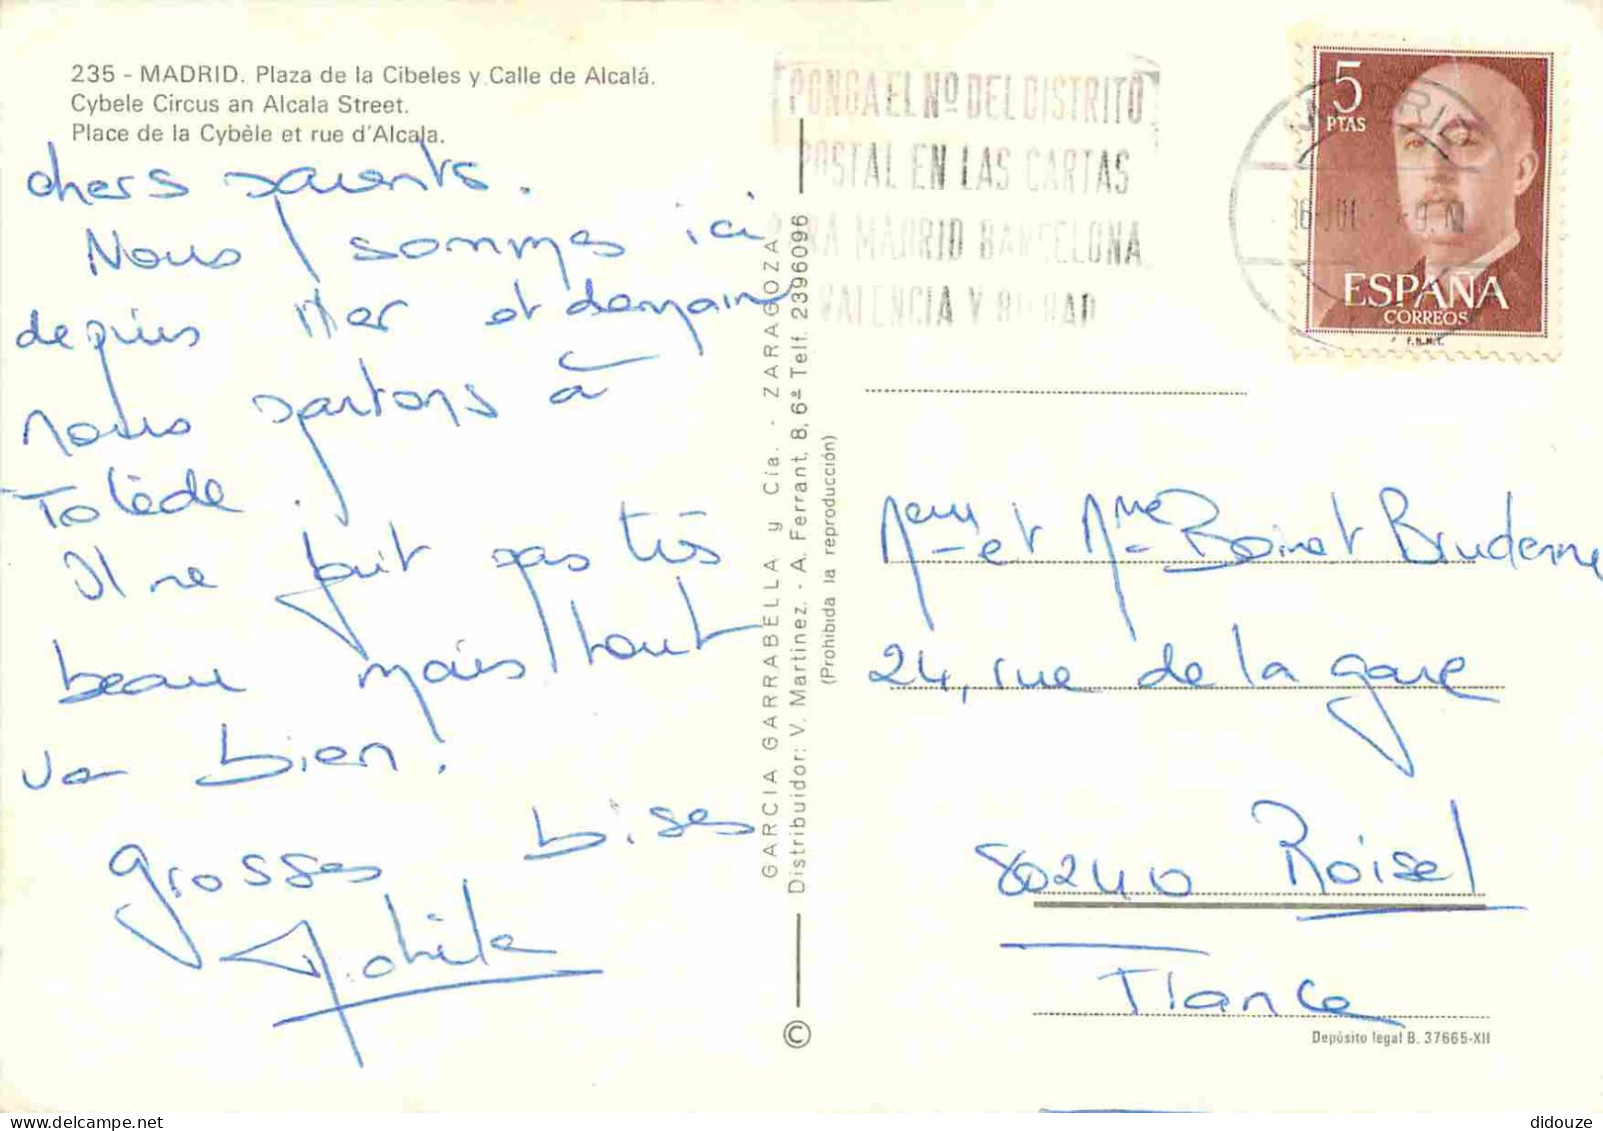 235 - MADRID. Plaza de la Cibeles y Calle de Alcalá.
Cybele Circus an Alcala Street.
Place de la Cybèle et rue d'Alcala.
chers parents.
Nous sommes ici
depuis Hier et demain
nous partons à
Tolède.
Il ne fait pas très
beau mais tout
va bien!
grosses bises
GARCIA GARRABELLA y Cía. - ZARAGOZA
Distribuidor: V. Martinez. - A. Ferrant, 8, 6ª Telf. 2396096
(Prohibida la reproducción)
©
PONGA EL Nº DEL DISTRITO
POSTAL EN LAS CARTAS
PARA MADRID BARCELONA
VALENCIA Y BILBAO
MADRID
5
PTAS
ESPAÑA
CORREOS
F.N.M.T.
et Mme Boinet
24, rue de la gare
80240 Roisel
France
Depósito legal B. 37665-XII
didouze